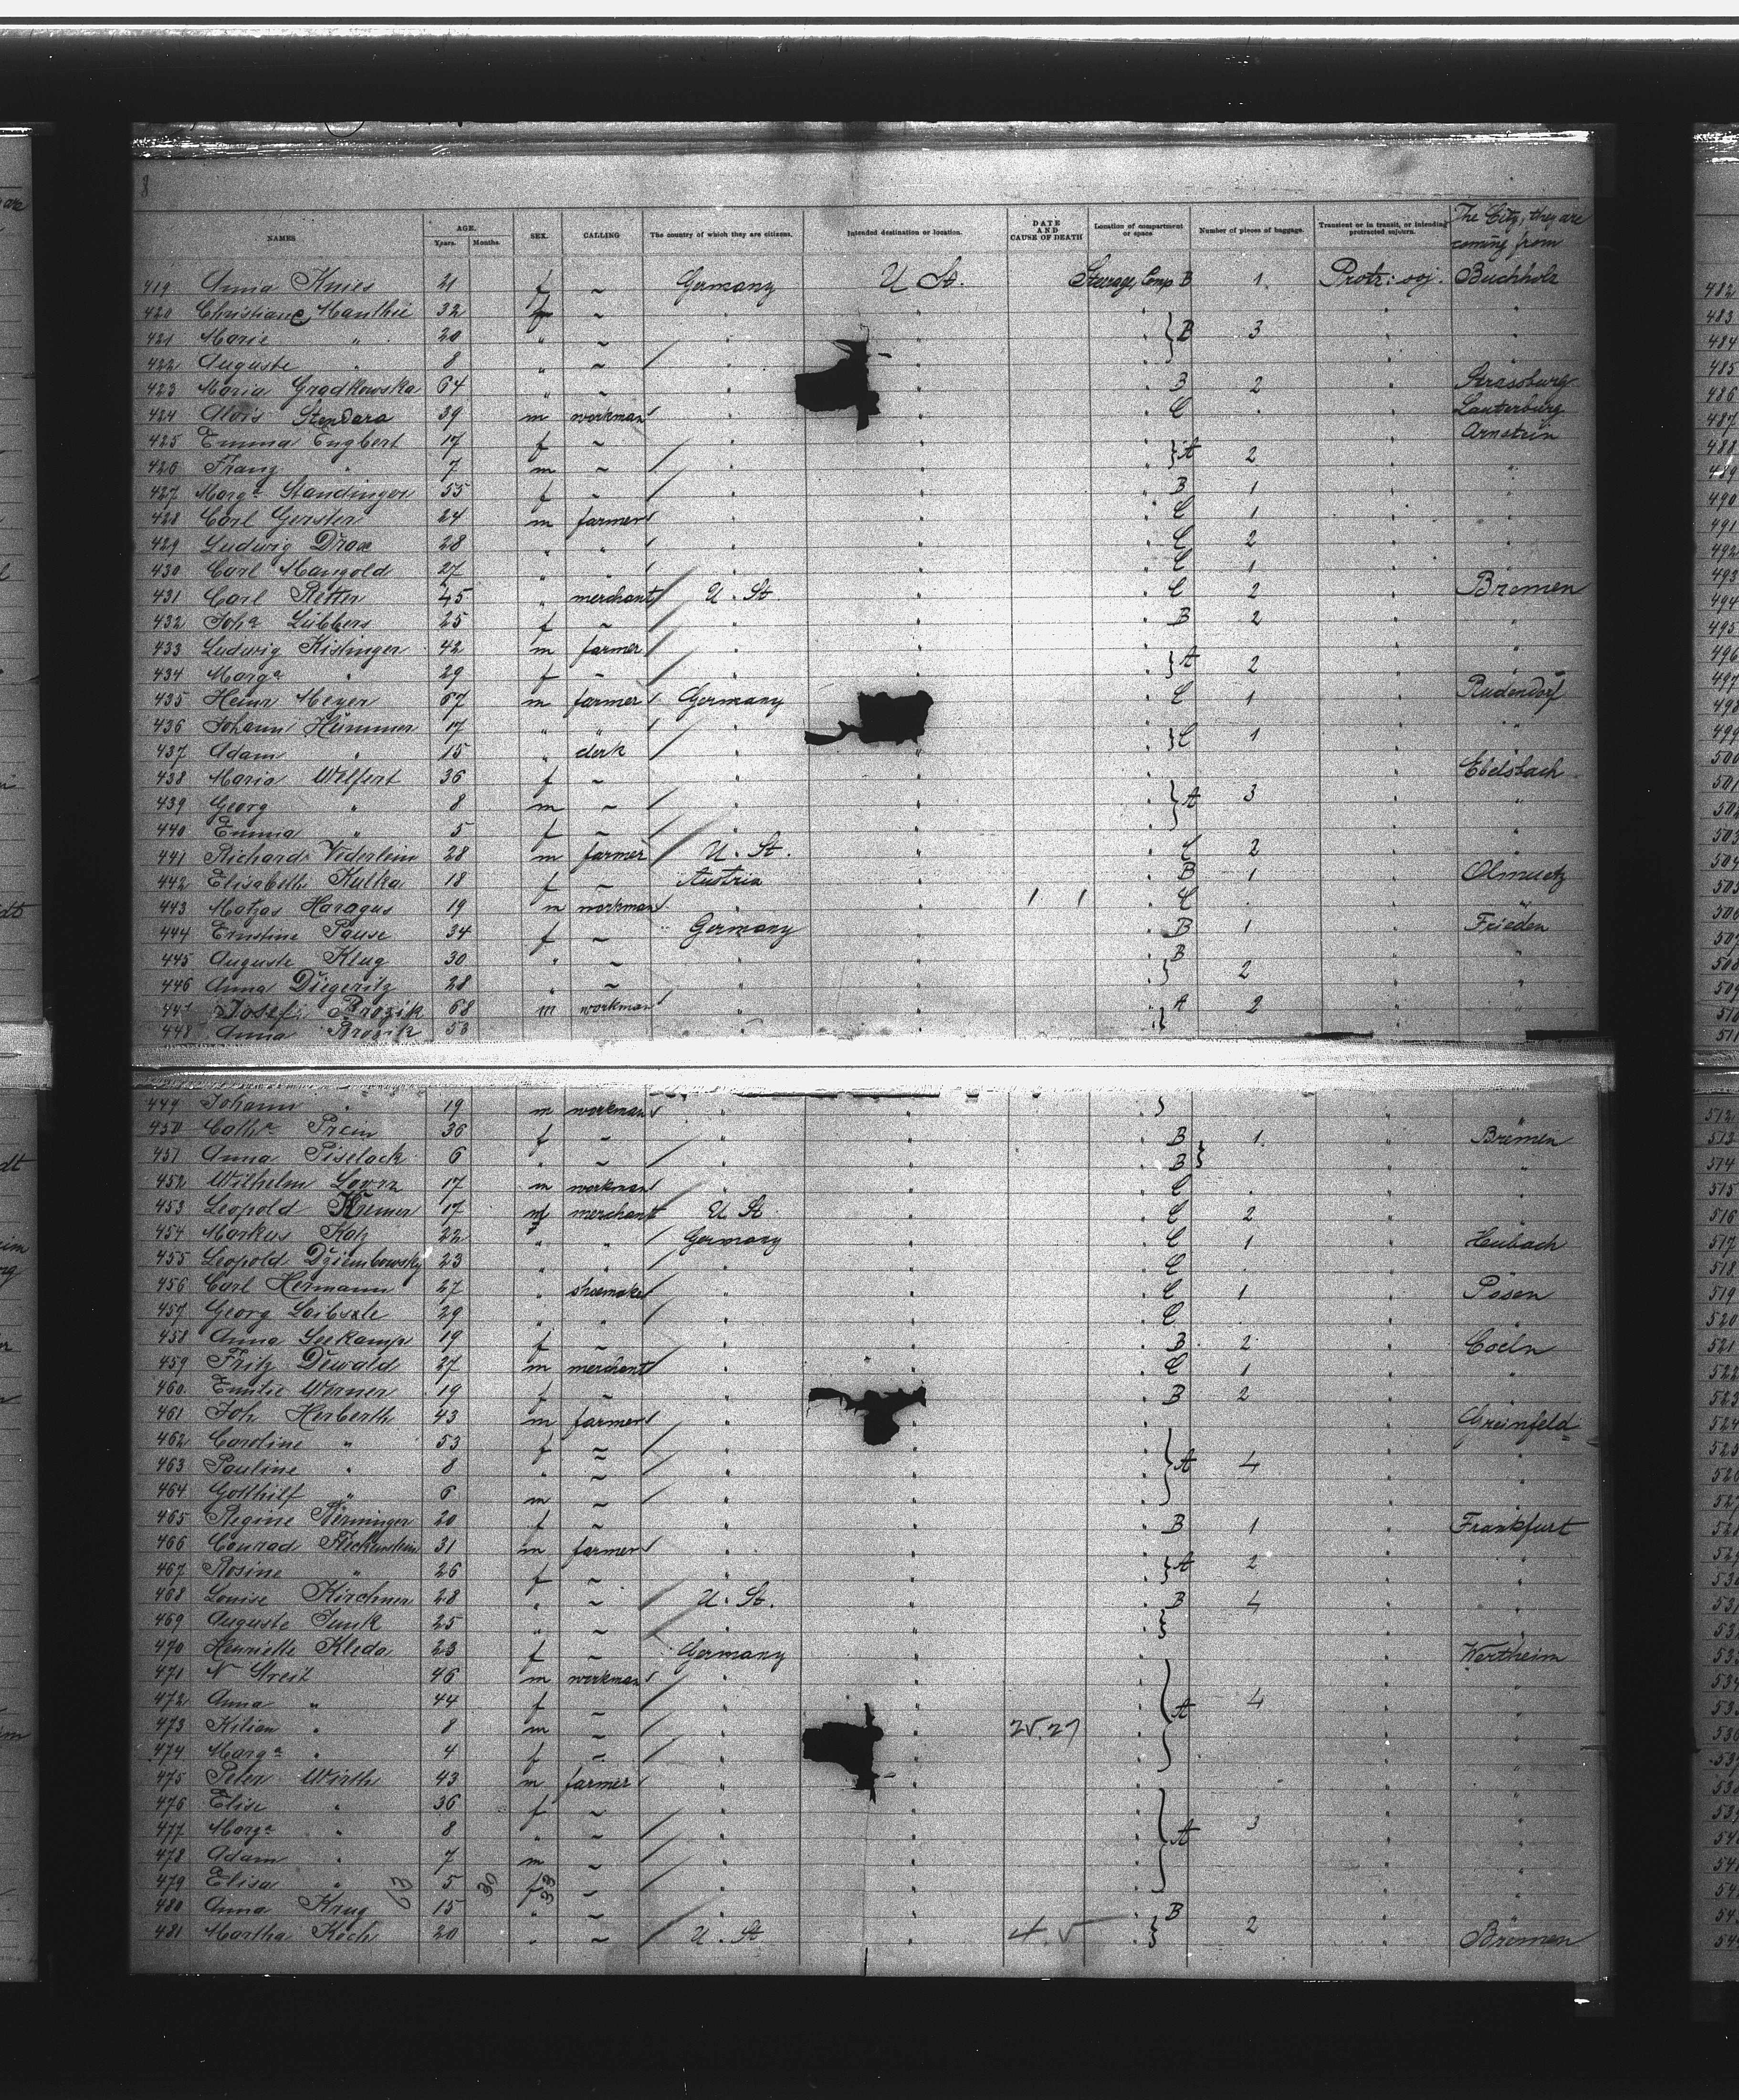 NAMES AGE. Years. Months. SEX. CALLING The country of which they are citizens. Intended destination or location. DATE AND CAUSE OF DEATH Location of compartment or space. Number of pieces of baggage. Transient or in transit, or intending protracted sojourn. The City, they are coming from
419 Anna Knies 21 f ~ Germany U St. Steerage Comp. B 1. Protr: soj. Buchholz
420 Christiane Manthie 32 f ~
421 Marie " 20 " ~ } B 3
422 Auguste " 8 " ~
423 Maria Gradkowska 64 " ~ B 2 Strassburg
424 Alois Stendara 39 m workman C Lauterburg
425 Emma Engbert 17 f ~ Arnstein
426 Franz " 7 m ~ } A 2 "
427 Marga Standinger 55 f ~ B 1 "
428 Carl Gerster 24 m farmer C 1 "
429 Ludwig Drax 28 " " C 2 "
430 Carl Mangold 27 " " C 1 "
431 Carl Retter 45 " merchant U. St C 2 Bremen
432 Joha Lübbers 25 f ~ " B 2 "
433 Ludwig Kislinger 42 m farmer " "
434 Marga " 29 f ~ " } A 2 "
435 Heinr Meyer 67 m farmer Germany C 1 Rudendorf
436 Johann Hümmer 17 " " " "
437 Adam " 15 " clerk " } C 1 "
438 Maria Welfert 36 f ~ " Ebelsbach
439 Georg " 8 m ~ " } A 3 "
440 Emma " 5 f ~ " "
441 Richard Vederlein 28 m farmer U. St. C 2 "
442 Elisabeth Kulka 18 f ~ Austria B 1 Olmuetz
443 Matzas Haragus 19 m workman " C "
444 Ernstine Pause 34 f ~ Germany B 1 Frieden
445 Auguste Klug 30 " ~ " B "
446 Anna Diegeritz 28 " ~ " } 2 "
447 Josef Brozik 68 m workman " A 2 "
448 Anna Brozik 53
449 Johann " 19 m workman " } "
450 Catha Prem 36 f ~ " B 1. Bremen
451 Anna Piselack 6 " ~ " B } "
452 Wilhelm Lovrz 17 m workman " C "
453 Leopold Kremer 17 m merchant U St C 2 "
454 Markus Katz 22 " " Germany C 1 Heubach
455 Leopold Dziembowsky 23 " " " C
456 Carl Hermann 27 " shoemaker " C 1 Posen
457 Georg Loibszle 29 " " " C
458 Anna Seekamp 19 f ~ " B 2 Coeln
459 Fritz Dewald 27 m merchant " C 1 "
460 Emilie Werner 19 f ~ " B 2 "
461 Joh Herberth 43 m farmer " Greinfeld
462 Caroline " 53 f ~ " "
463 Pauline " 8 " ~ " } A 4 "
464 Gotthilf " 6 m ~ " "
465 Regine Renninger 20 f ~ " B 1 Frankfurt
466 Conrad Fleckenstein 31 m farmer " "
467 Rosine " 26 f ~ " } A 2 "
468 Louise Kirchner 28 " ~ U. St. B 4 "
469 Auguste Junk 25 " ~ " } "
470 Henriette Kleda 23 f ~ Germany Wertheim
471 N Streit 46 m workman " "
472 Anna " 44 f ~ " } A 4 "
473 Kilian " 8 m ~ " 25.27 "
474 Marga " 4 f ~ " "
475 Peter Wirth 43 m farmer " "
476 Elise " 36 f ~ " "
477 Marga " 8 " ~ " } A 3 "
478 Adam " 7 m ~ " "
479 Elisa " 5 f ~ " "
480 Anna Krug 15 " ~ " B "
481 Martha Koch 20 " ~ U. St } 2 Bremen